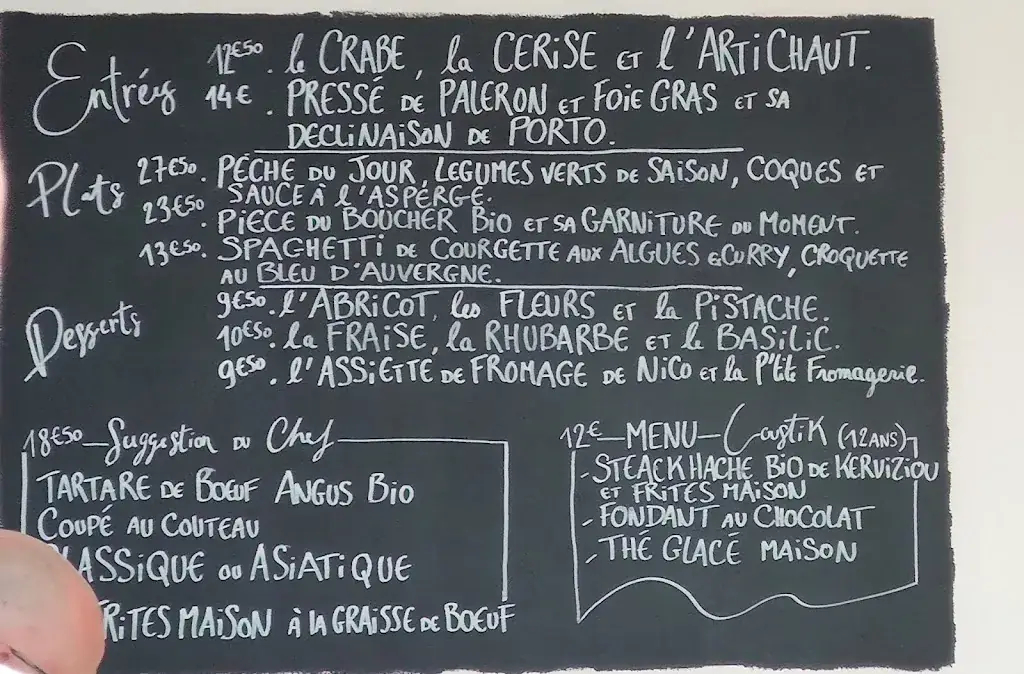 Entrées 12€50. le CRABE, la CERISE ET l'ARTICHAUT.
14€. PRESSÉ DE PALERON ET FOIE GRAS ET SA
DECLINAISON DE PORTO.
Plats 27€50. PÉCHE DU JOUR, LEGUMES VERTS DE SAISON, COQUES ET
SAUCE À L'ASPERGE.
23€50. PIÈCE DU BOUCHER BIO ET SA GARNITURE DU MOMENT.
13€50. SPAGHETTI DE COURGETTE AUX ALGUES & CURRY, CROQUETTE
AU BLEU D'AUVERGNE.
Desserts 9€50. l'ABRICOT, les FLEURS ET la PISTACHE.
10€50. la FRAISE, la RHUBARBE ET le BASILIC.
9€50. l'ASSIETTE DE FROMAGE DE NICO ET la P'tite Fromagerie.
18€50 Suggestion DU Chef
TARTARE DE BOEUF ANGUS BIO
COUPÉ AU COUTEAU
LASSIQUE OU ASIATIQUE
RITES MAISON À LA GRAISSE DE BOEUF
12€ MENU (12 ANS)
- STEACK HACHE BIO DE KERVIZIOU
ET FRITES MAISON
- FONDANT AU CHOCOLAT
- THÉ GLACÉ MAISON